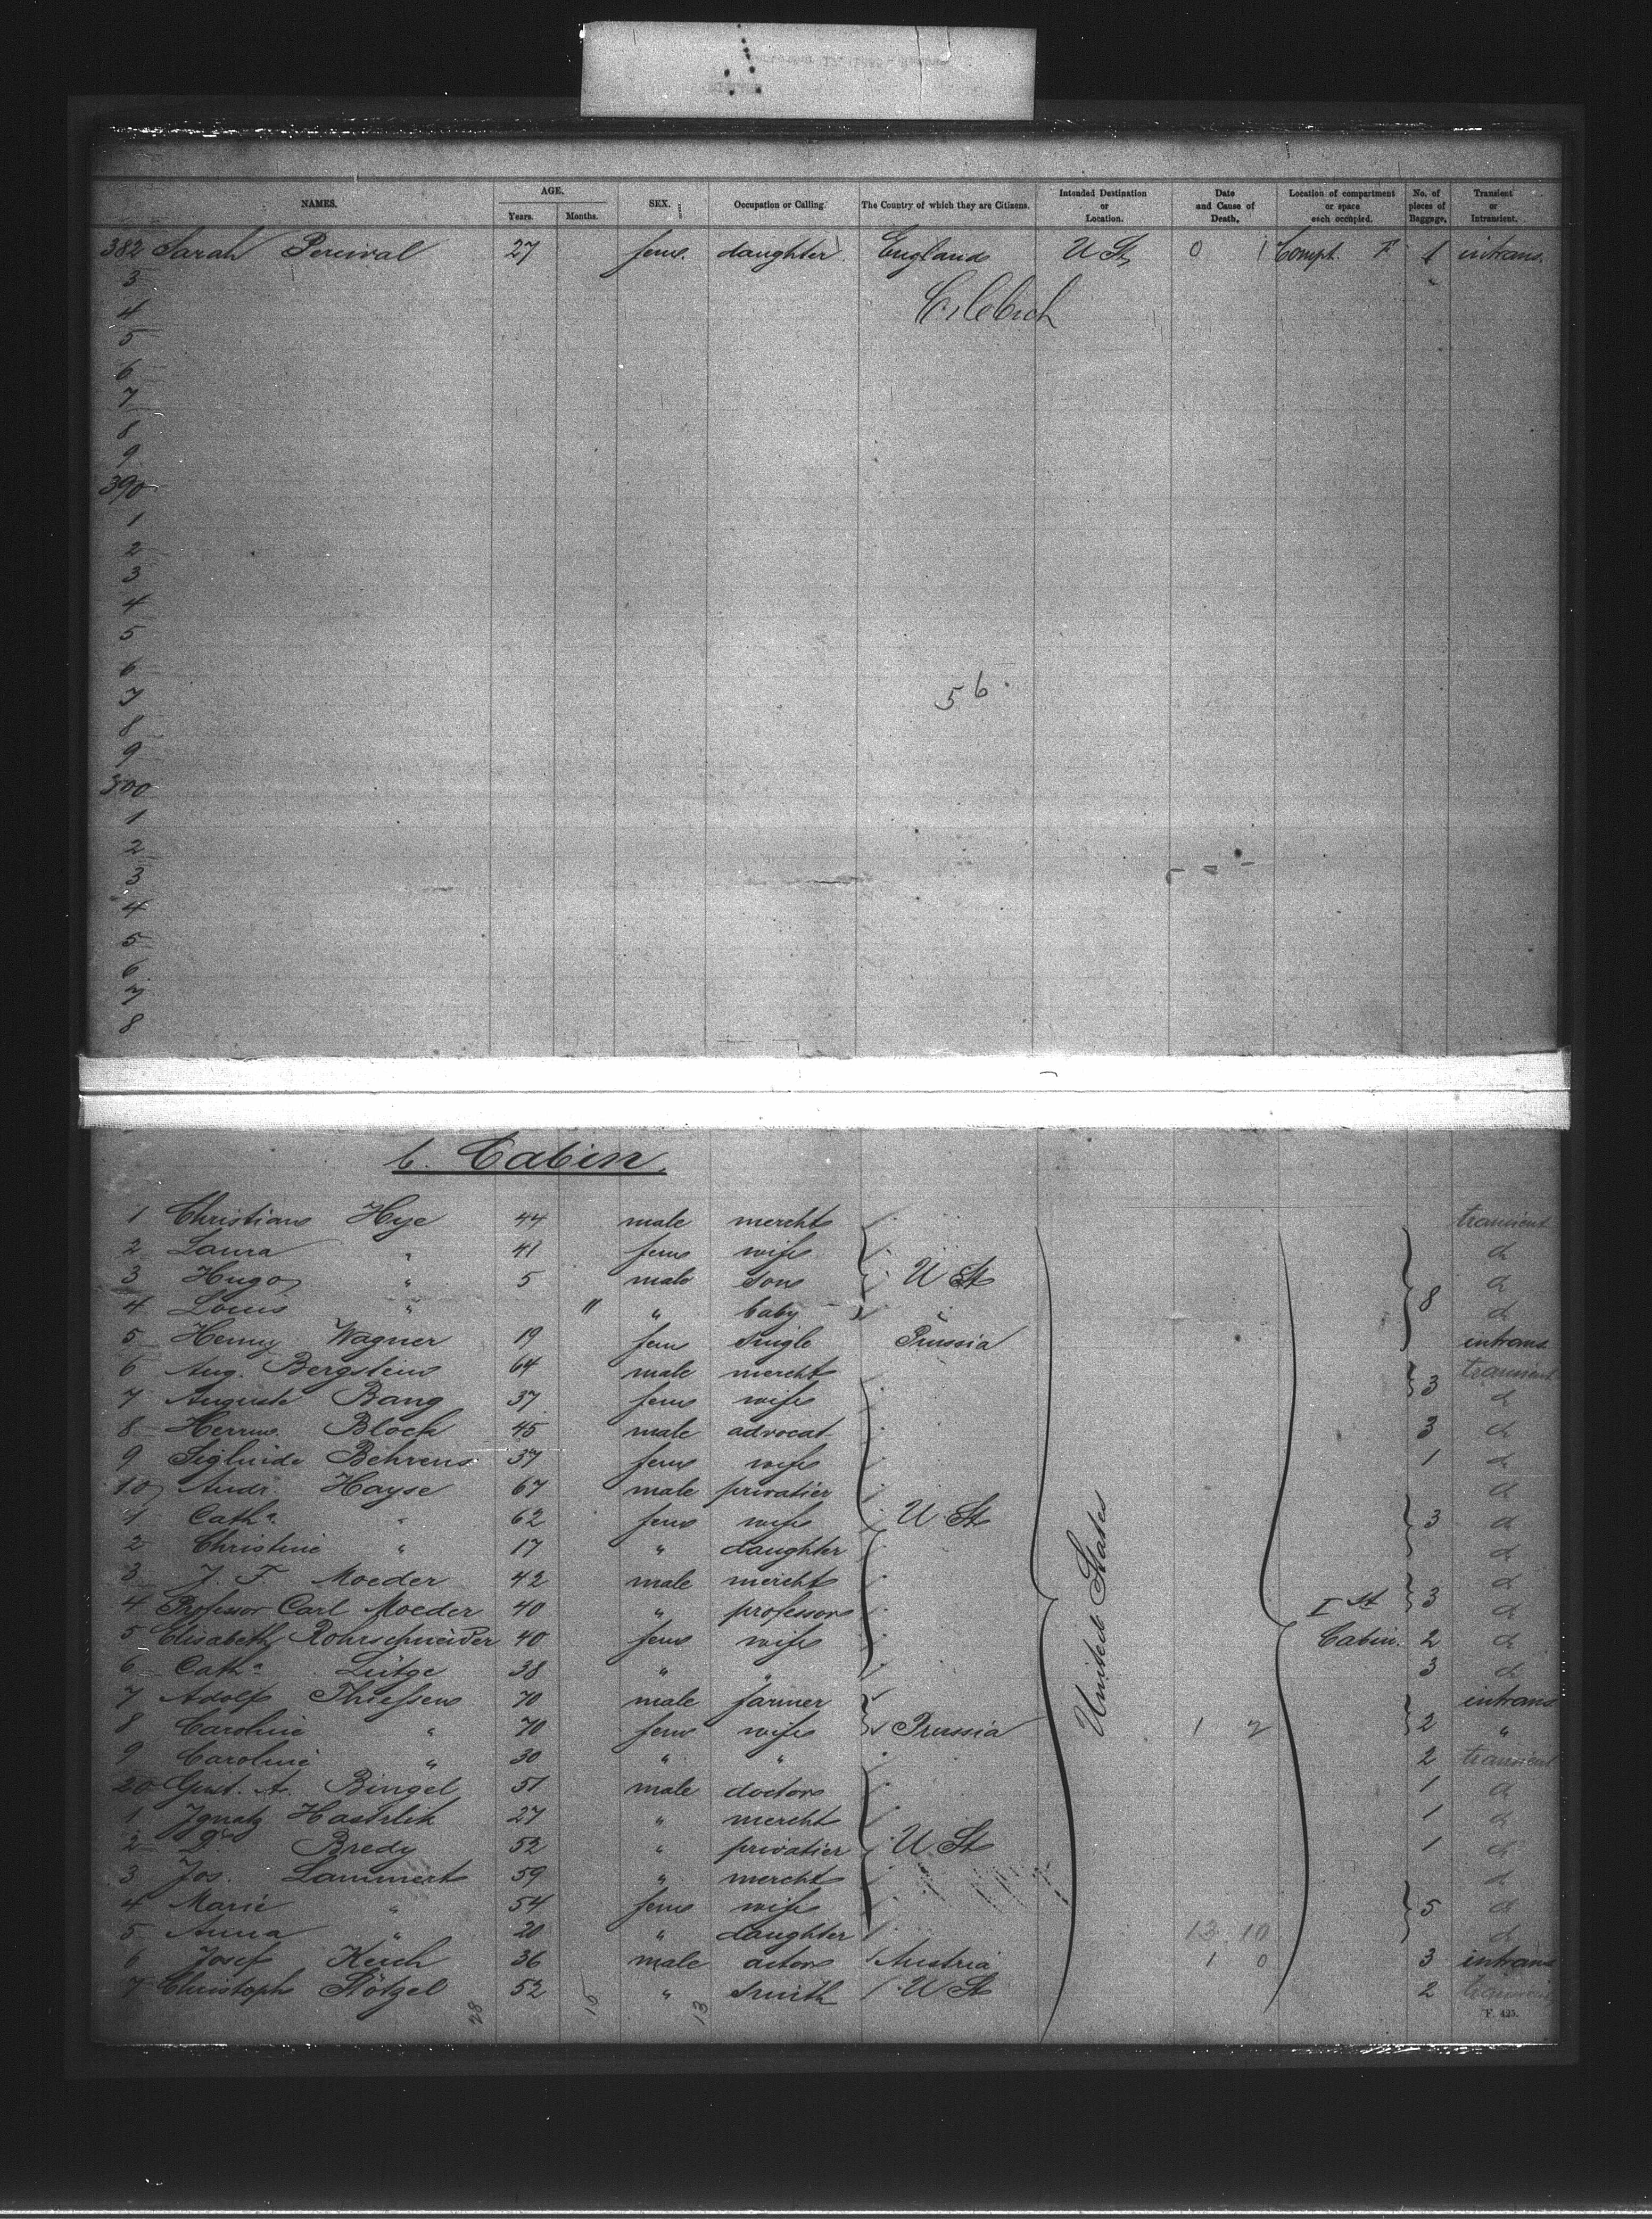 NAMES. AGE. Years. Months. SEX. Occupation or Calling. The Country of which they are Citizens. Intended Destination or Location. Date and Cause of Death. Location of compartment or space each occupied. No. of pieces of Baggage. Transient or Intransient.
382 Sarah Percival 27 fem. daughter England U St 0 1 Compt. F 1 intrans.
3
4
5
6
7
8
9
390
1
2
3
4
5
6
7 56
8
9
300
1
2
3
4
5
6
7
8
b. Cabin.
1 Christian Hye 44 male mercht transient
2 Laura " 41 fem wife d
3 Hugo " 5 male son U St d
4 Louis " 11 " baby 8 d
5 Henny Wagner 19 fem single Prussia intrans
6 Aug. Bergstein 64 male mercht transient
7 Auguste Bang 37 fem wife 3 d
8 Herrm. Block 45 male advocat 3 d
9 Behrens 37 fem wife 1 d
10 Andr. Hayse 67 male privatier d
1 Cath. " 62 fem wife U St 3 d
2 Christine " 17 " daughter d
3 J. F. Moeder 42 male mercht d
4 Professor Carl Moeder 40 " professor United States Ist 3 d
5 Elisabeth Rohrschneider 40 fem wife Cabin. 2 d
6 Cath. Lütge 38 " " 3 d
7 Adolf Thießen 70 male farmer intrans
8 Caroline " 70 fem wife Prussia 1 2 2 "
9 Caroline " 30 " " 2 transient
20 Gust. A. Bingel 51 male doctor 1 d
1 Ignatz Hastrlik 27 " mercht 1 d
2 Dr Bredy 52 " privatier U St 1 d
3 Jos. Lammert 59 " mercht d
4 Marie " 54 fem wife 5 d
5 Anna " 20 " daughter 13 10 d
6 Josef Keich 36 male actor Austria 1 0 3 intrans
7 Christoph Stötzel 52 " smith U St 2 transient
28 15 13 F. 425.